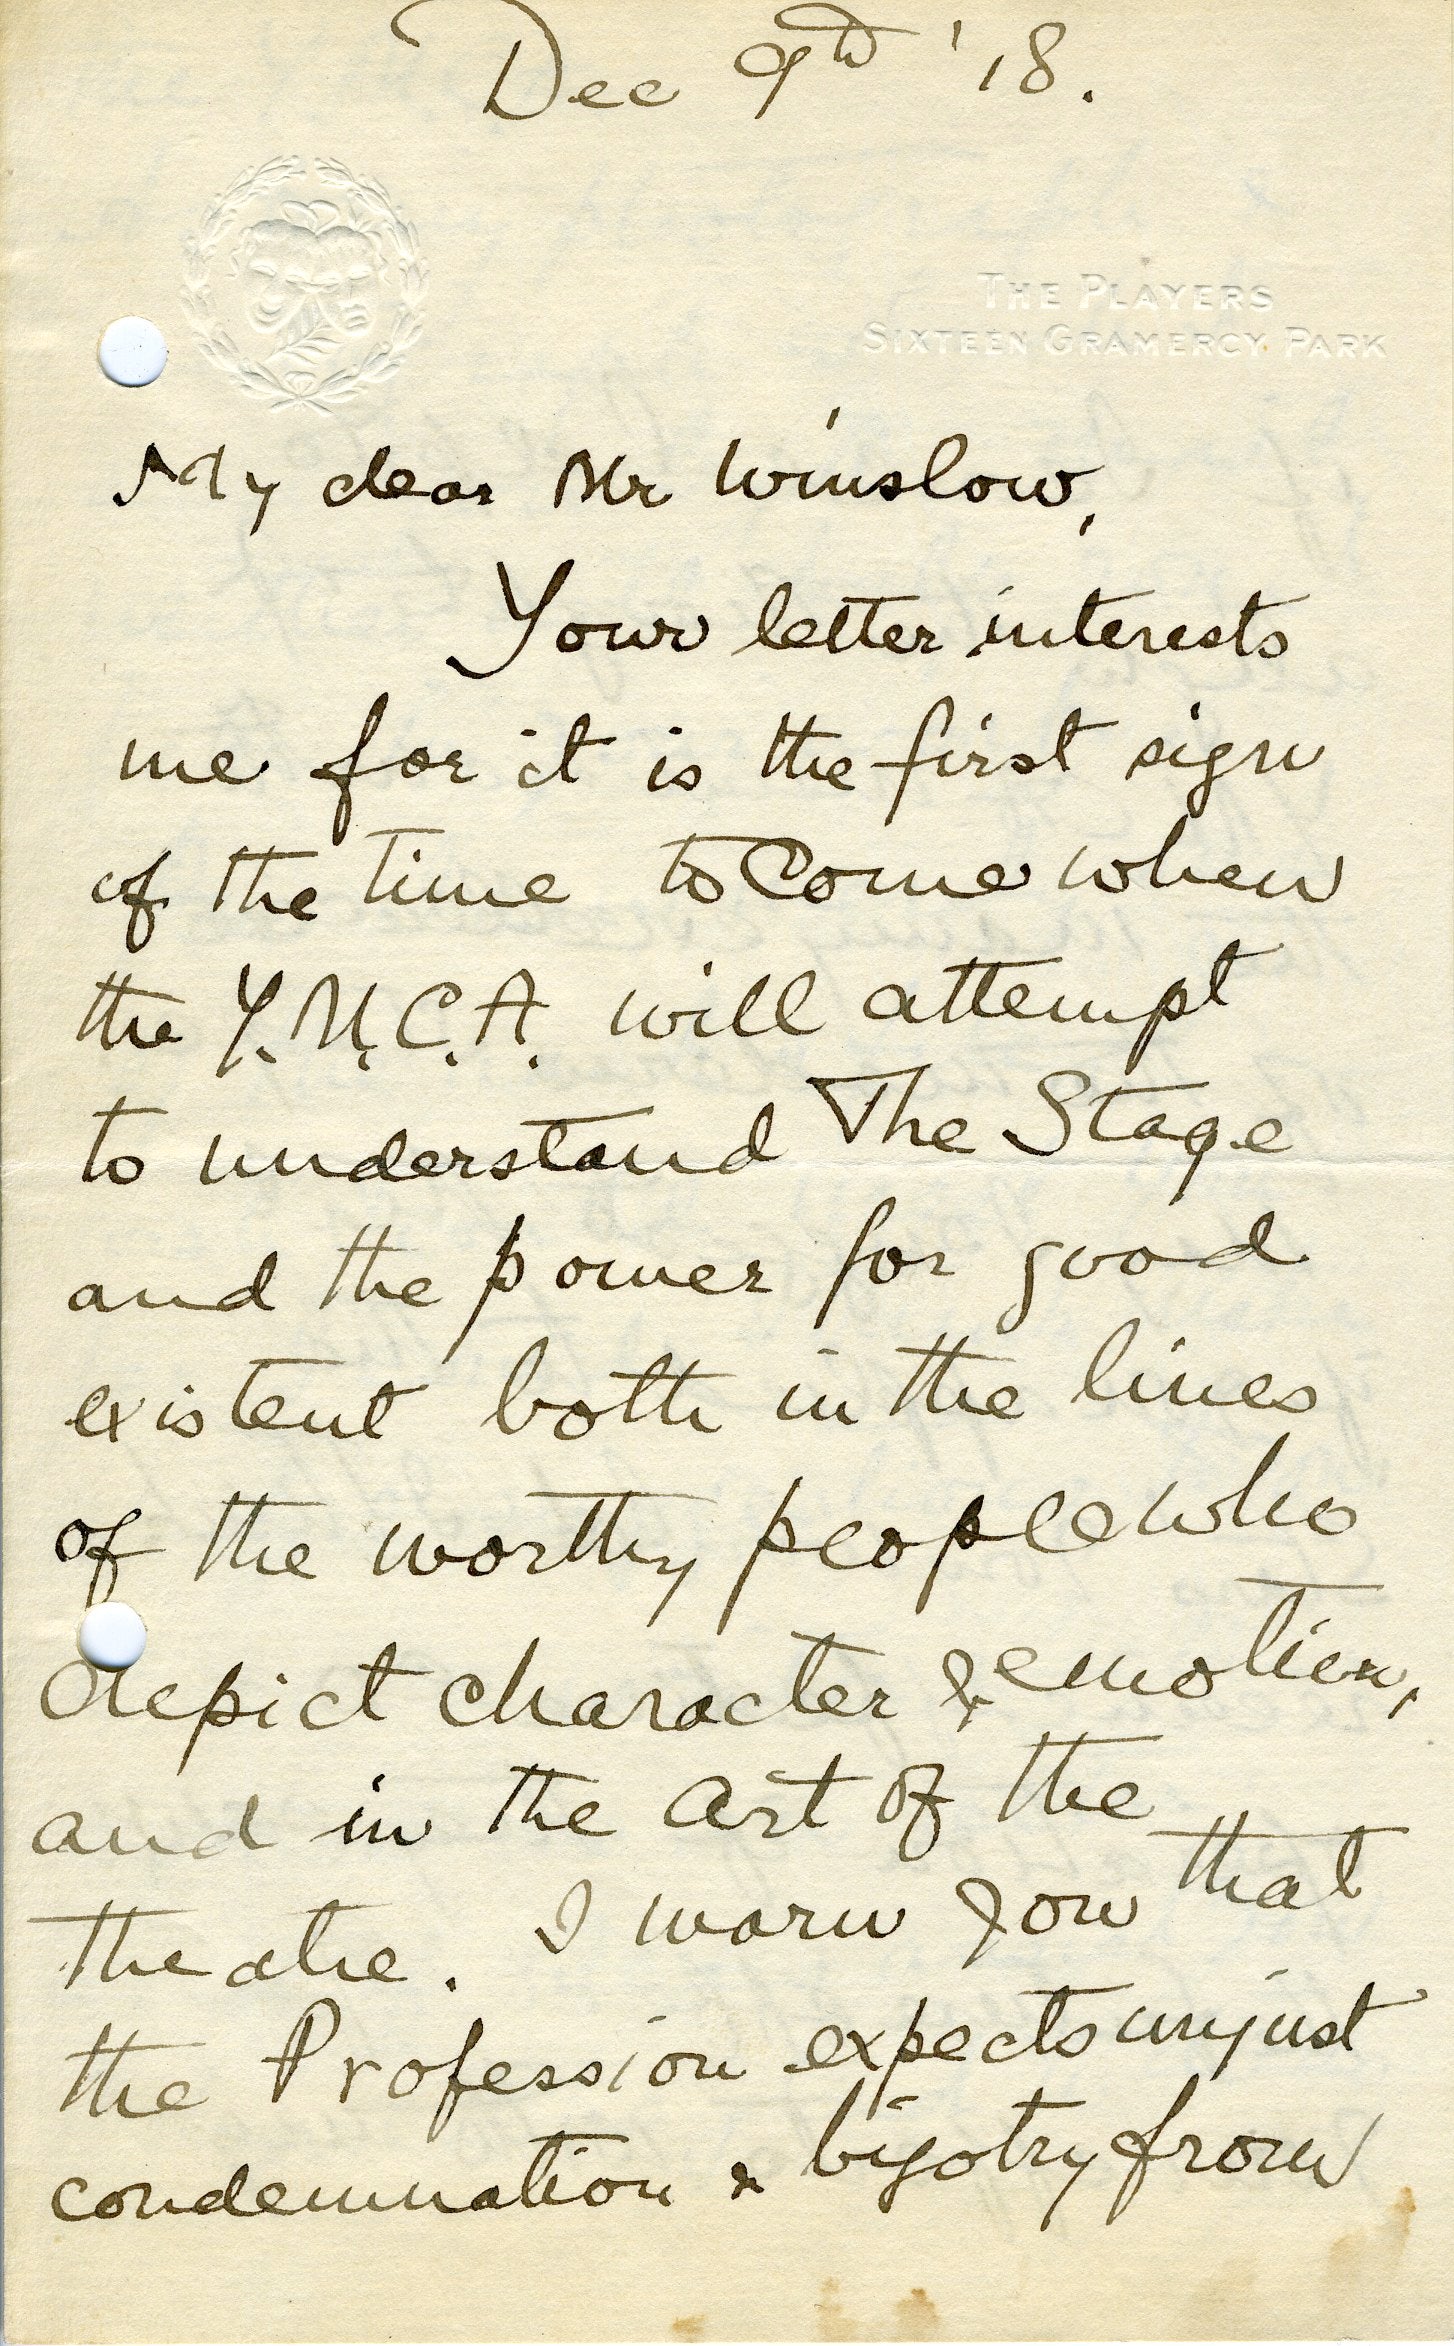 Dec 9th '18.
THE PLAYERS
SIXTEEN GRAMERCY PARK
My dear Mr Winslow,
Your letter interests
me for it is the first sign
of the time to come when
the Y.M.C.A. will attempt
to understand The Stage
and the power for good
existent both in the lines
of the worthy people who
depict character & emotion,
and in the art of the
theatre. I warn you that
the Profession expects unjust
condemnation & bigotry from